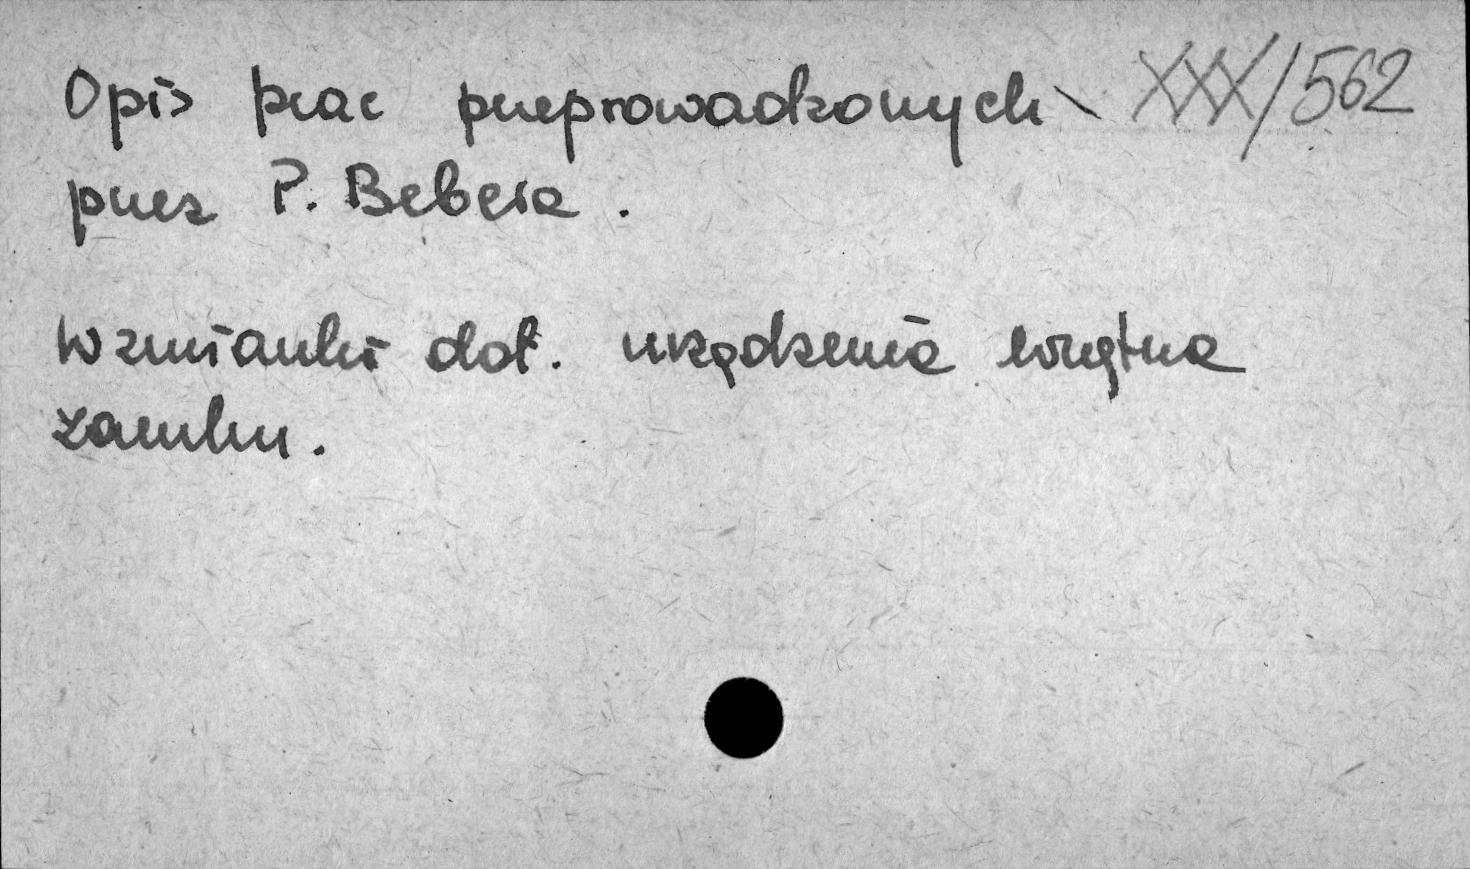 Opis prac przeprowadzonych XXX/562
przez P. Bebera.
Wzmianki dot. urządzenia wnętrza
zamku.